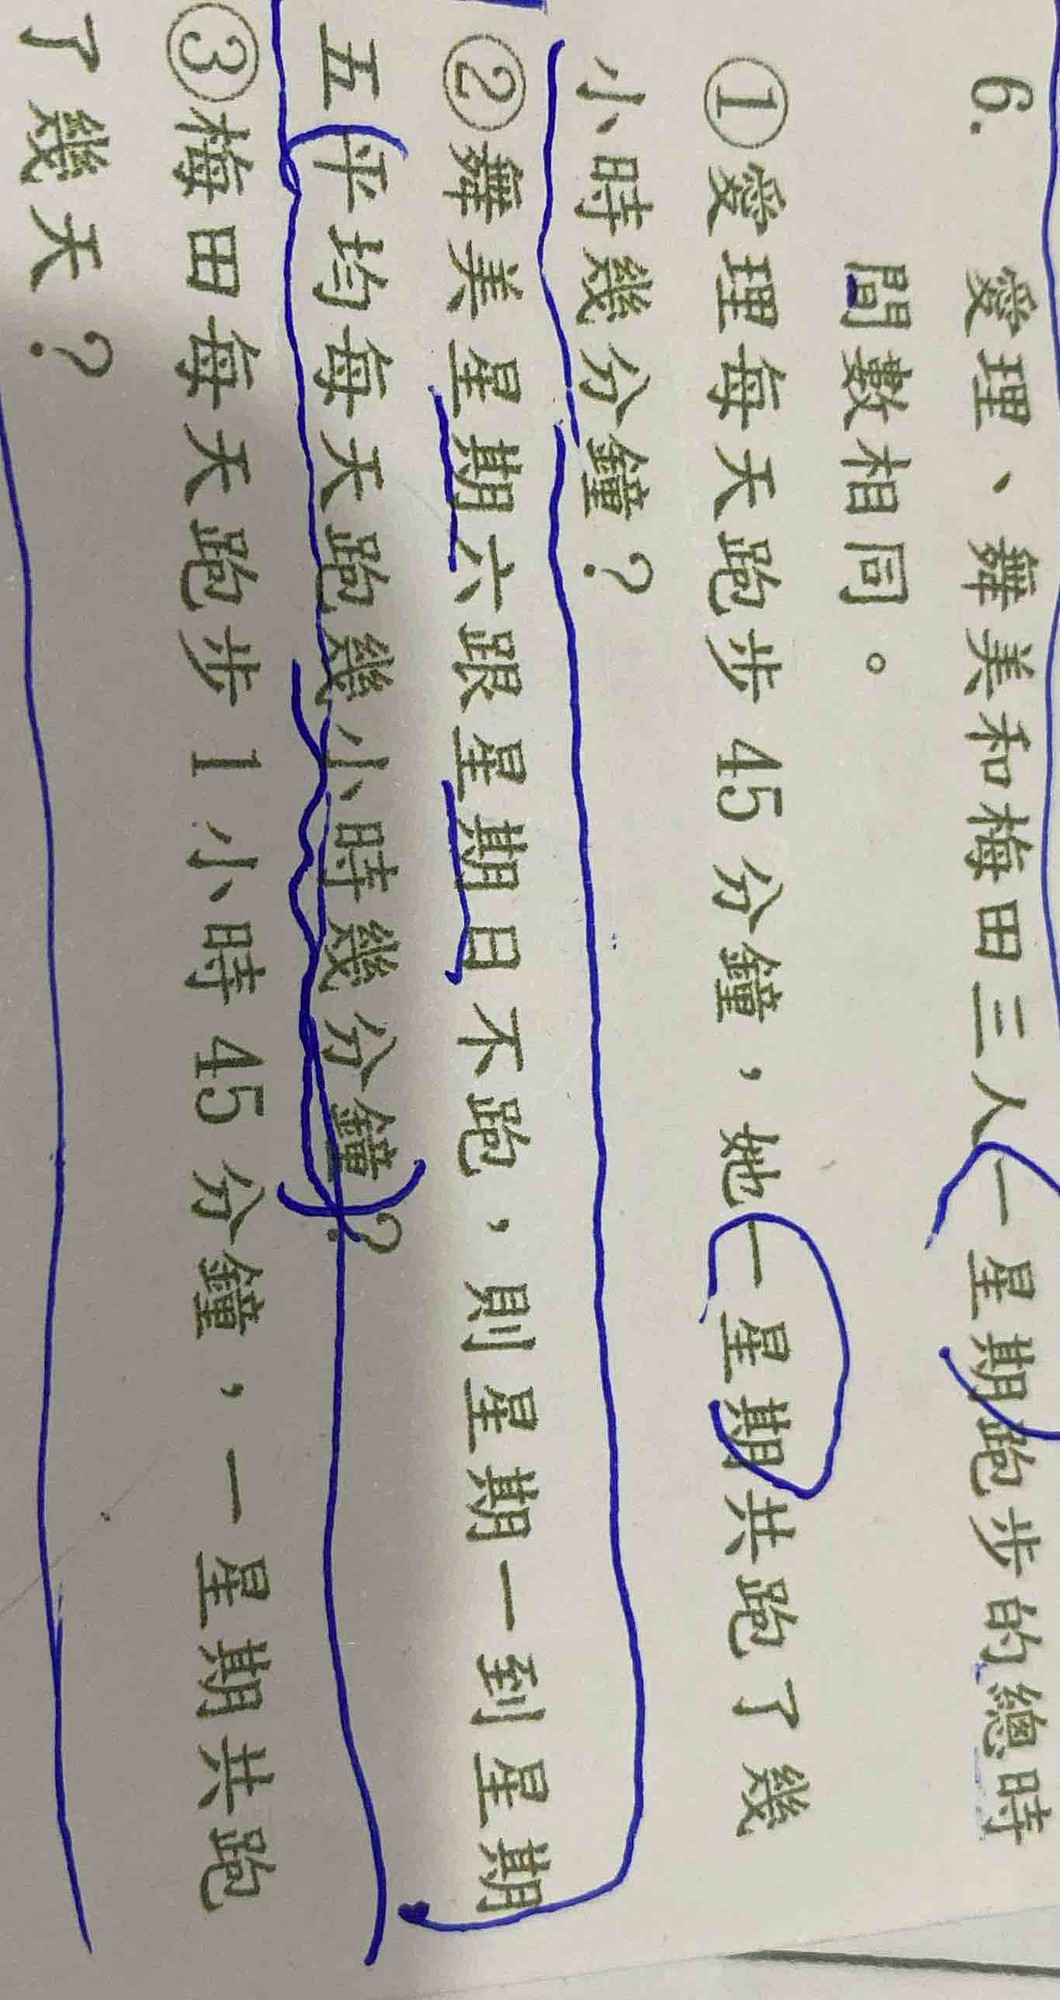 6. 愛理、舞美和梅田三人一星期跑步的總時
間數相同。
①愛理每天跑步 45 分鐘，她一星期共跑了幾
小時幾分鐘？
②舞美星期六跟星期日不跑，則星期一到星期
五(平均每天跑幾小時幾分鐘)？
③梅田每天跑步 1 小時 45 分鐘，一星期共跑
了幾天？